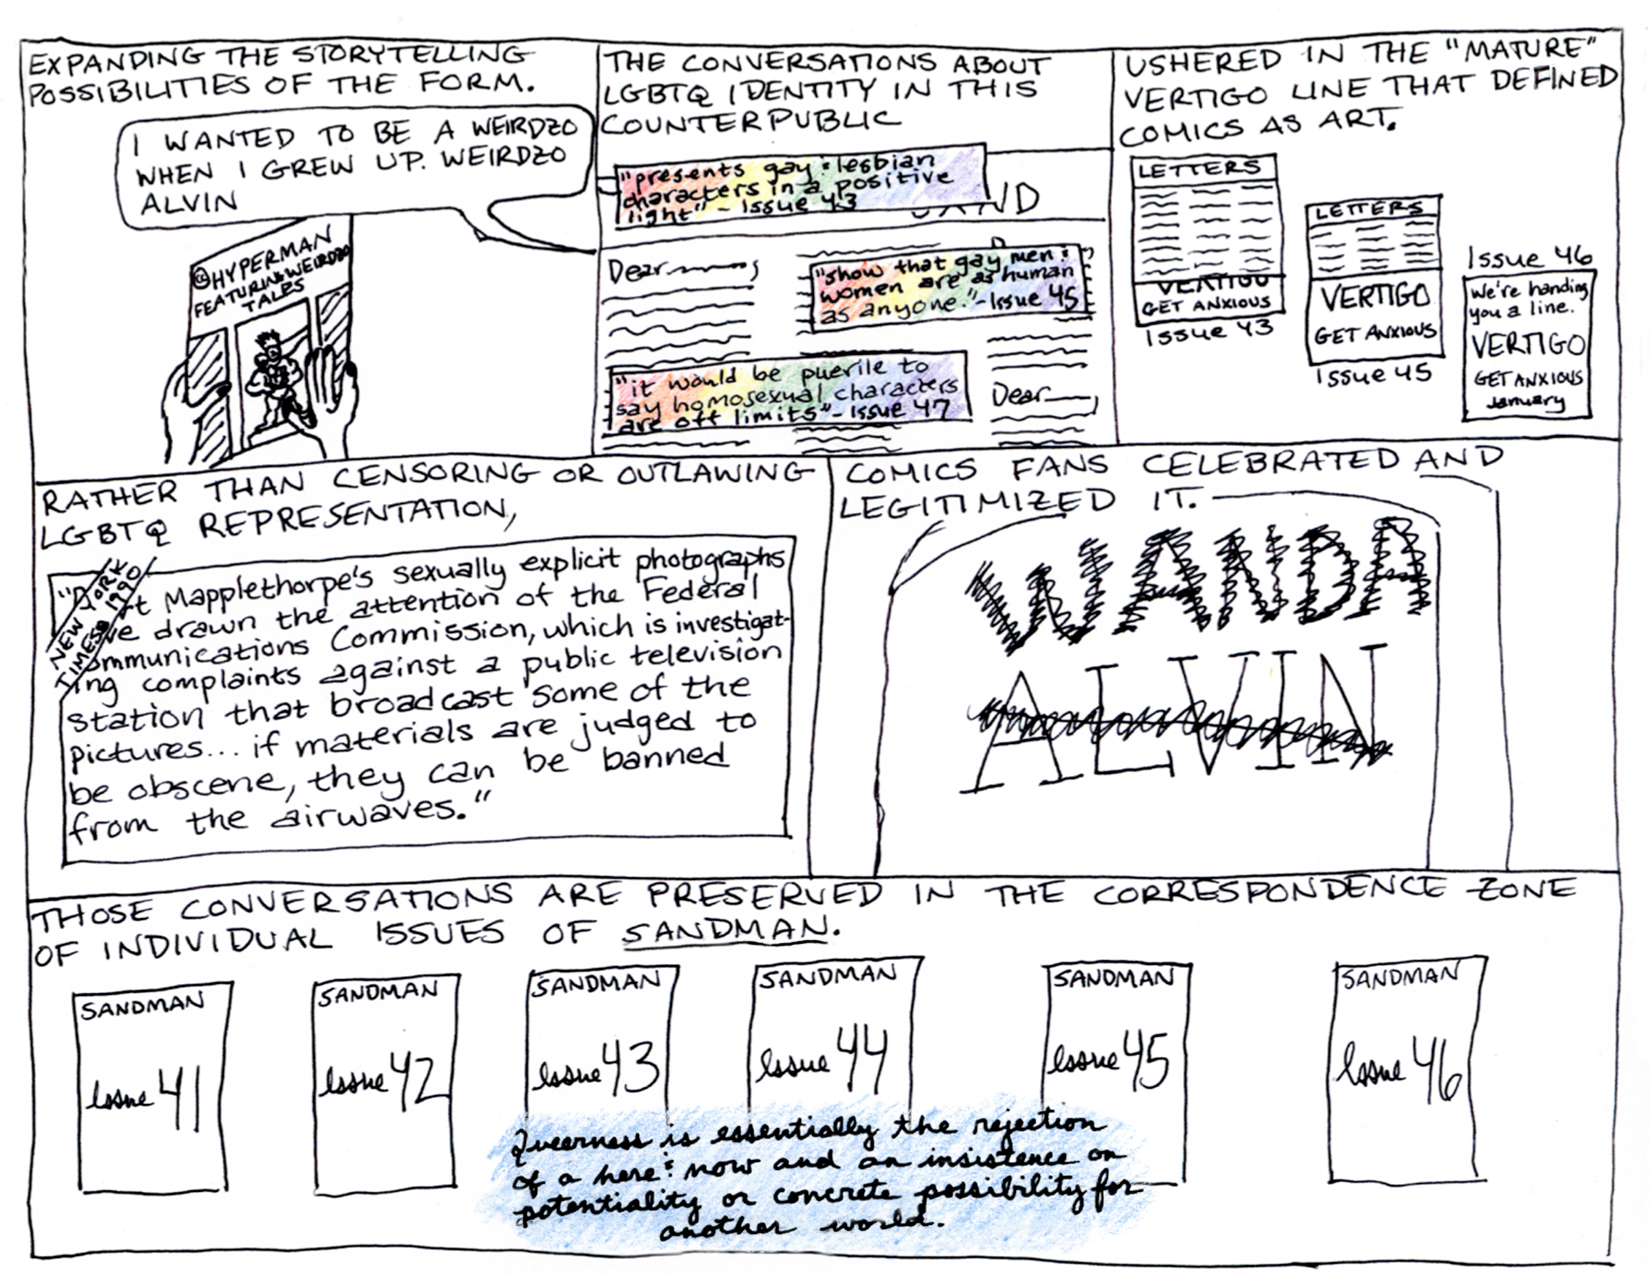 EXPANDING THE STORYTELLING
POSSIBILITIES OF THE FORM.
I WANTED TO BE A WEIRDZO
WHEN I GREW UP. WEIRDZO
ALVIN
©HYPERMAN
FEATURING WEIRDZO
TALES
THE CONVERSATIONS ABOUT
LGBTQ IDENTITY IN THIS
COUNTERPUBLIC
"presents gay & lesbian
characters in a positive
light" - Issue 43
SAND
Dear
"show that gay men &
women are as human
as anyone." - Issue 45
"it would be puerile to
say homosexual characters
are off limits" - Issue 47
Dear
USHERED IN THE "MATURE"
VERTIGO LINE THAT DEFINED
COMICS AS ART.
LETTERS
VERTIGO
GET ANXIOUS
Issue 43
LETTERS
VERTIGO
GET ANXIOUS
Issue 45
Issue 46
We're handing
you a line.
VERTIGO
GET ANXIOUS
January
RATHER THAN CENSORING OR OUTLAWING
LGBTQ REPRESENTATION,
NEW YORK
TIMES 1990
t Mapplethorpe's sexually explicit photographs
ve drawn the attention of the Federal
ommunications Commission, which is investigat-
ing complaints against a public television
station that broadcast some of the
pictures... if materials are judged to
be obscene, they can be banned
from the airwaves."
COMICS FANS CELEBRATED AND
LEGITIMIZED IT.
WANDA
ALVIN
THOSE CONVERSATIONS ARE PRESERVED IN THE CORRESPONDENCE ZONE
OF INDIVIDUAL ISSUES OF SANDMAN.
SANDMAN
Issue 41
SANDMAN
Issue 42
SANDMAN
Issue 43
SANDMAN
Issue 44
SANDMAN
Issue 45
SANDMAN
Issue 46
Queerness is essentially the rejection
of a here & now and an insistence on
potentiality or concrete possibility for
another world.